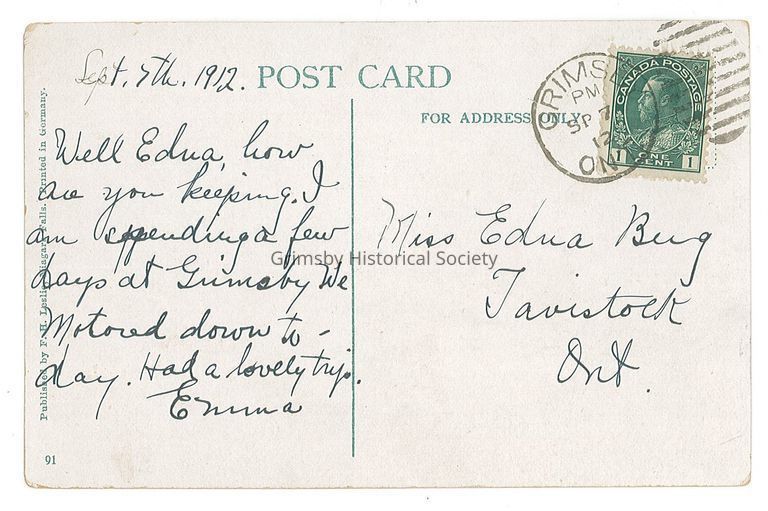 Sept. 7th. 1912.
POST CARD
FOR ADDRESS ONLY
GRIMSBY
PM
SP 7
12
ONT
CANADA POSTAGE
1 ONE CENT 1
Well Edna, how
are you keeping. I
am spending a few
days at Grimsby We
Motored down to-
day. Had a lovely trip.
Emma
Miss Edna Berg
Tavistock
Ont.
Grimsby Historical Society
Published by F. H. Leslie, Niagara Falls. Printed in Germany.
91